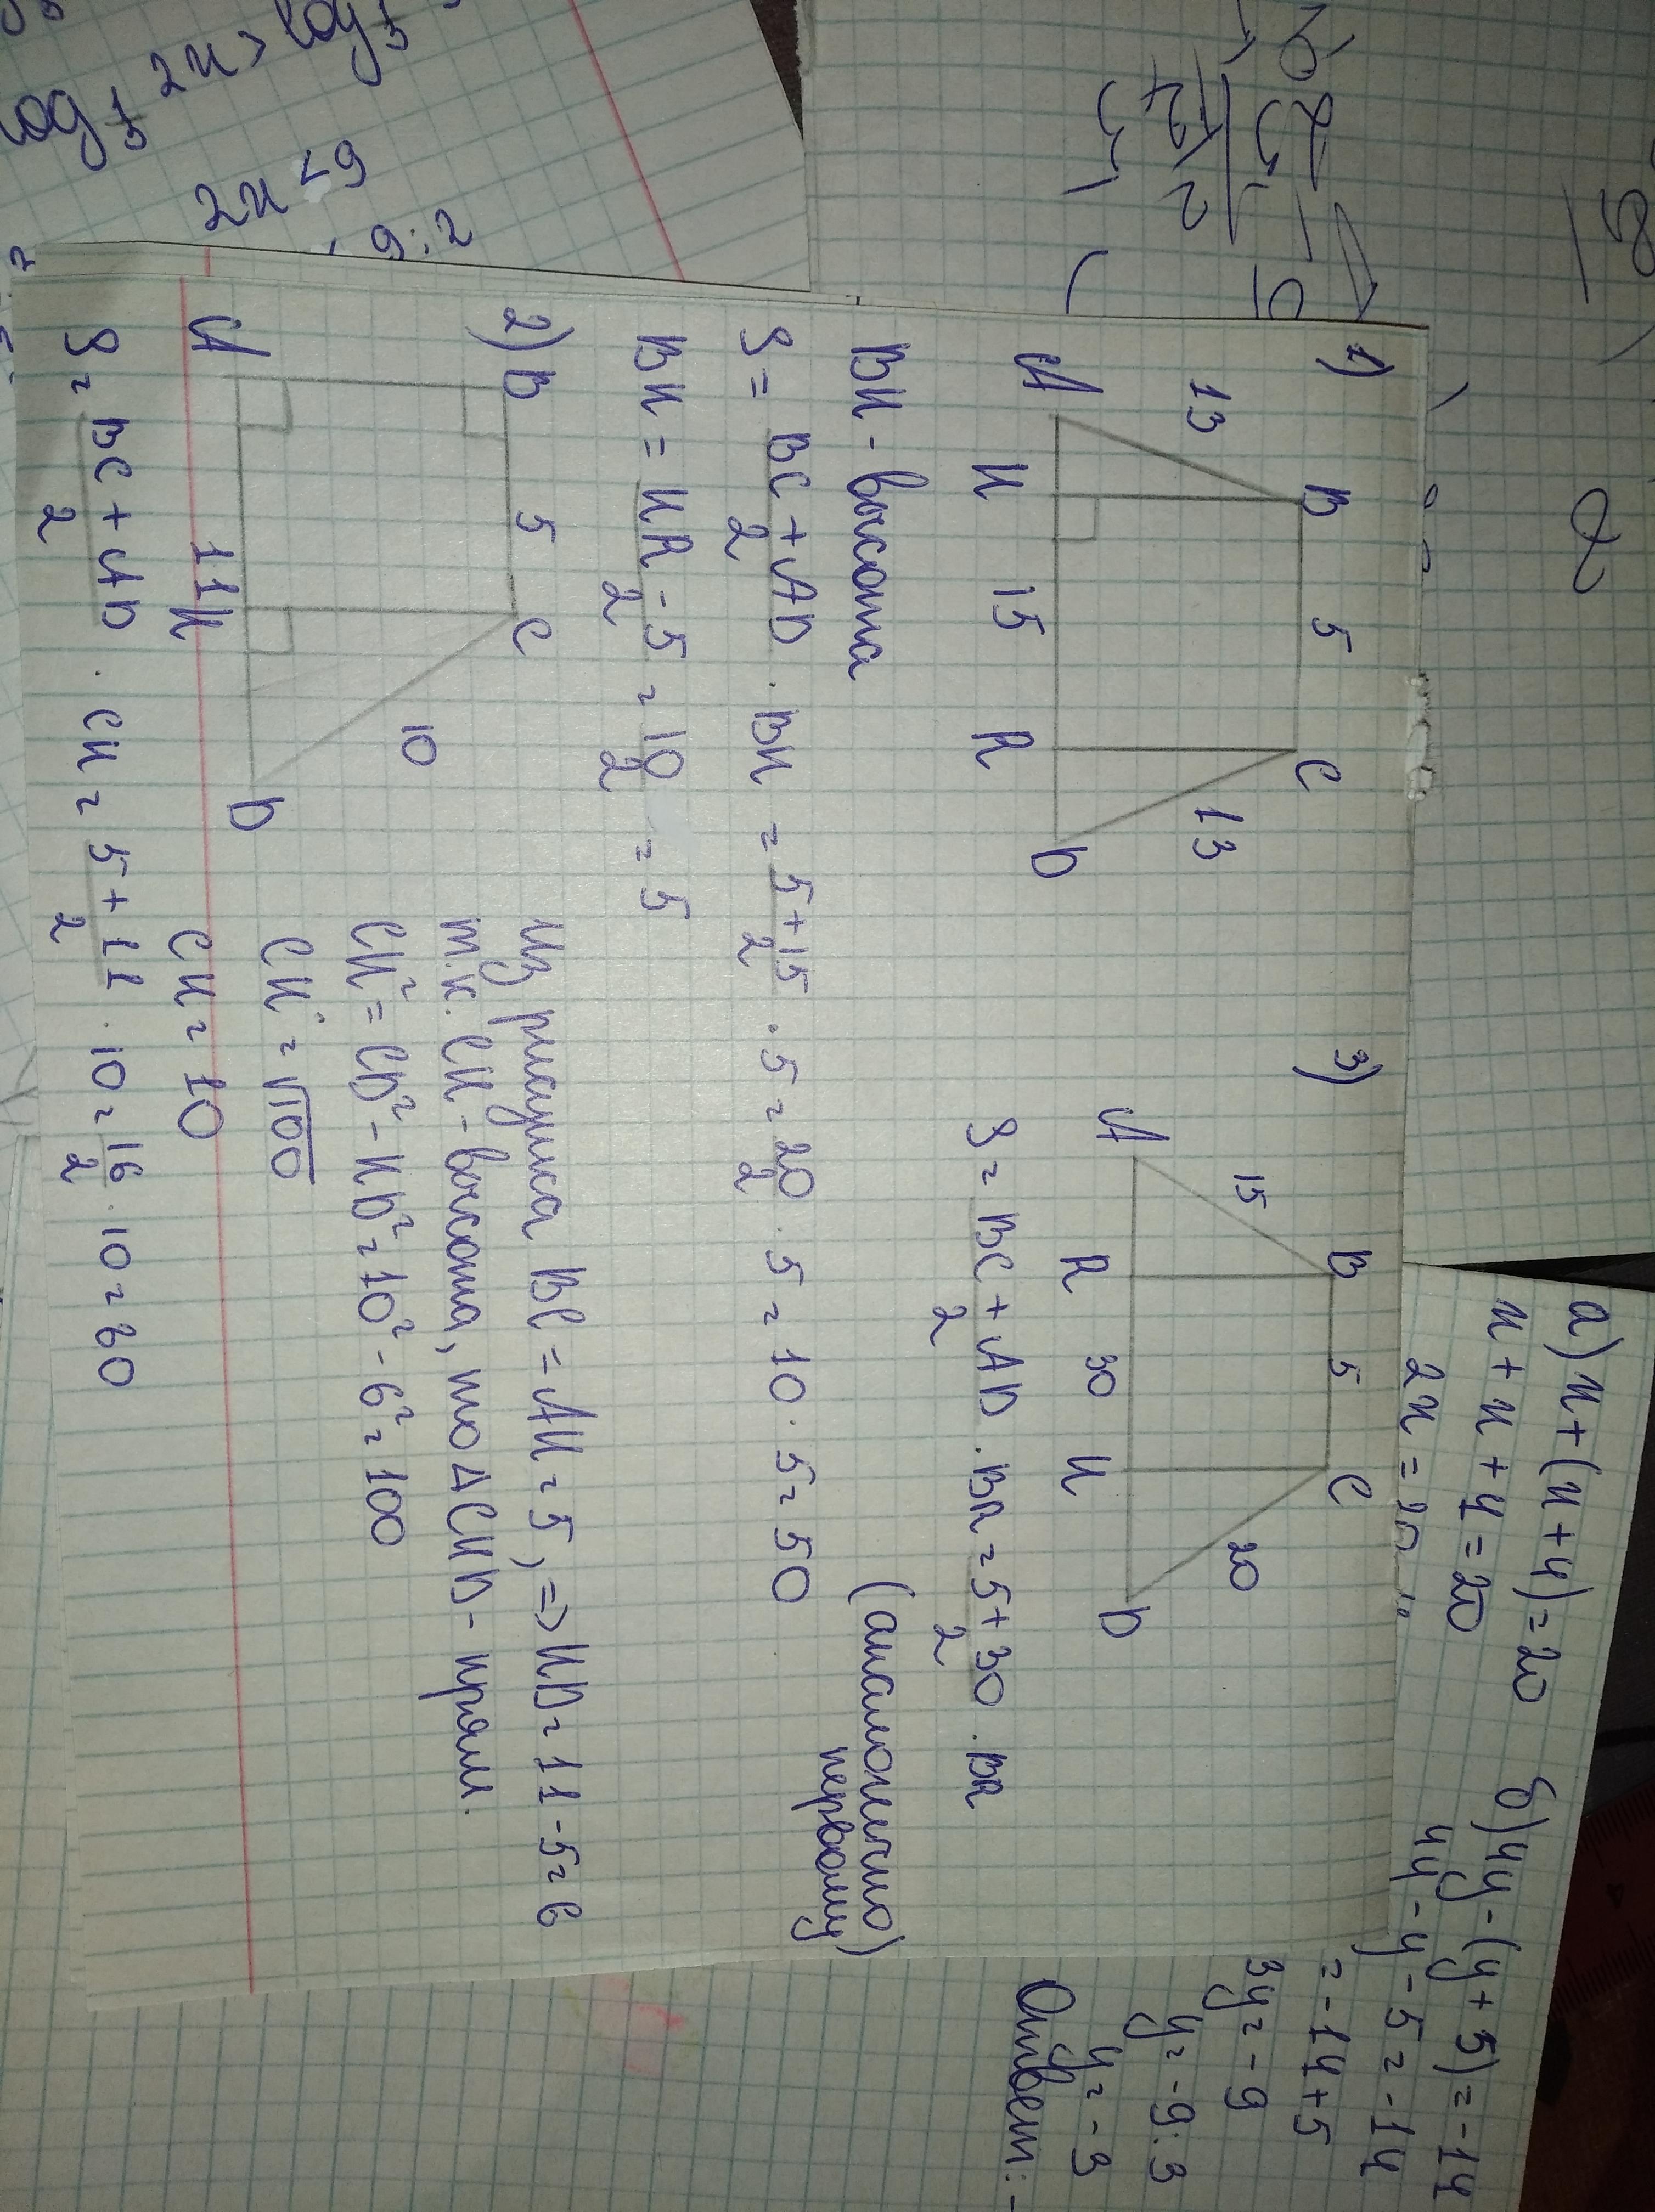 1)
B 5 C
13 13
A H 15 R D
BH - высота
S = BC + AD / 2 · BH = 5+15 / 2 · 5 = 20 / 2 · 5 = 10 · 5 = 50
BH = HR - 5 / 2 = 10 / 2 = 5
2) B 5 C
10
A 11 H D
Из рисунка BC = AH = 5, => HD = 11 - 5 = 6
т.к. CH - высота, то Δ CHD - прям.
CH² = CD² - HD² = 10² - 6² = 100
CH = √100
CH = 10
S = BC + AD / 2 · CH = 5 + 11 / 2 · 10 = 16 / 2 · 10 = 80
3)
B 5 C
15 20
A R 30 H D
S = BC + AD / 2 · BR = 5 + 30 / 2 · BR
(аналогично
первому)
а) x + (x + 4) = 20
x + x + 4 = 20
2x =
б) 4y - (y + 5) = -14
4y - y - 5 = -14
= -14 + 5
3y = -9
y = -9 : 3
y = -3
Ответ: -
2x > log
log
2x < 9
9 : 2